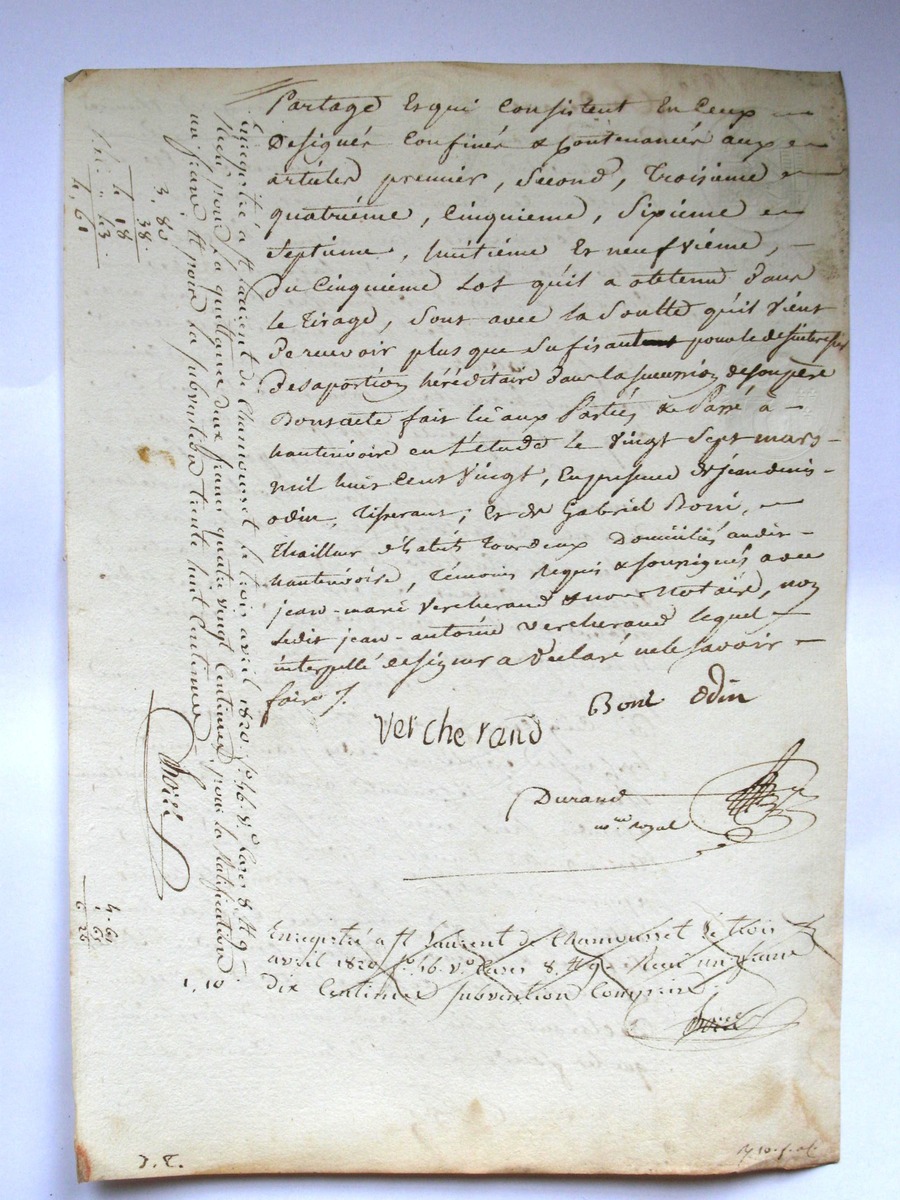 Partage Et qui Consistent En Ceux
Designés Confinés & Contenancés aux
articles premier, Second, Troisieme
quatriéme, Cinquieme, Sixieme
Septieme, huitiéme Et neufvième,
du Cinquiéme Lot qu'il a obtenu dans
le Tirage, sont avec la Soulte qu'il vient
Percevoir plus que sufisant pour le desinteresser
de sa portion héréditaire dans la succession de son père
Dont acte fait lu aux Parties & Passé à
hauterivoire en l'etude le Vingt Sept mars
mil huit Cent Vingt, En presence de jean denis
odin, Tisserant; Et de Gabriel Boni,
Thailleur d'habits Tous deux Domiciliés audit
hauterivoire, Témoins Requis & soussignés avec
jean-marie Vercherand & nous Notaire, non
ledit jean-antoine Vercherand lequel
interpellé de signer a Déclaré ne le savoir
faire /.
Boni Odin
Vercherand
Durand
nre royal
Enregistré a St Laurent de Chamousset le trois
avril 1820 fo. 46. Vo. Cases 8. & 9. Recu un franc
dix Centimes subvention Comprise
1, 10
Enregistré a St Laurent de Chamousset le trois avril 1820 fo. 46. Vo. Cases 8. & 9
Recu pour la quittance deux francs quatre vingt Centimes, pour la Ratification
un franc & pour la subvention trente huit Centimes
3, 80
38
4 18
43
4, 61
4. 61
1. 65
6 26
J. E.